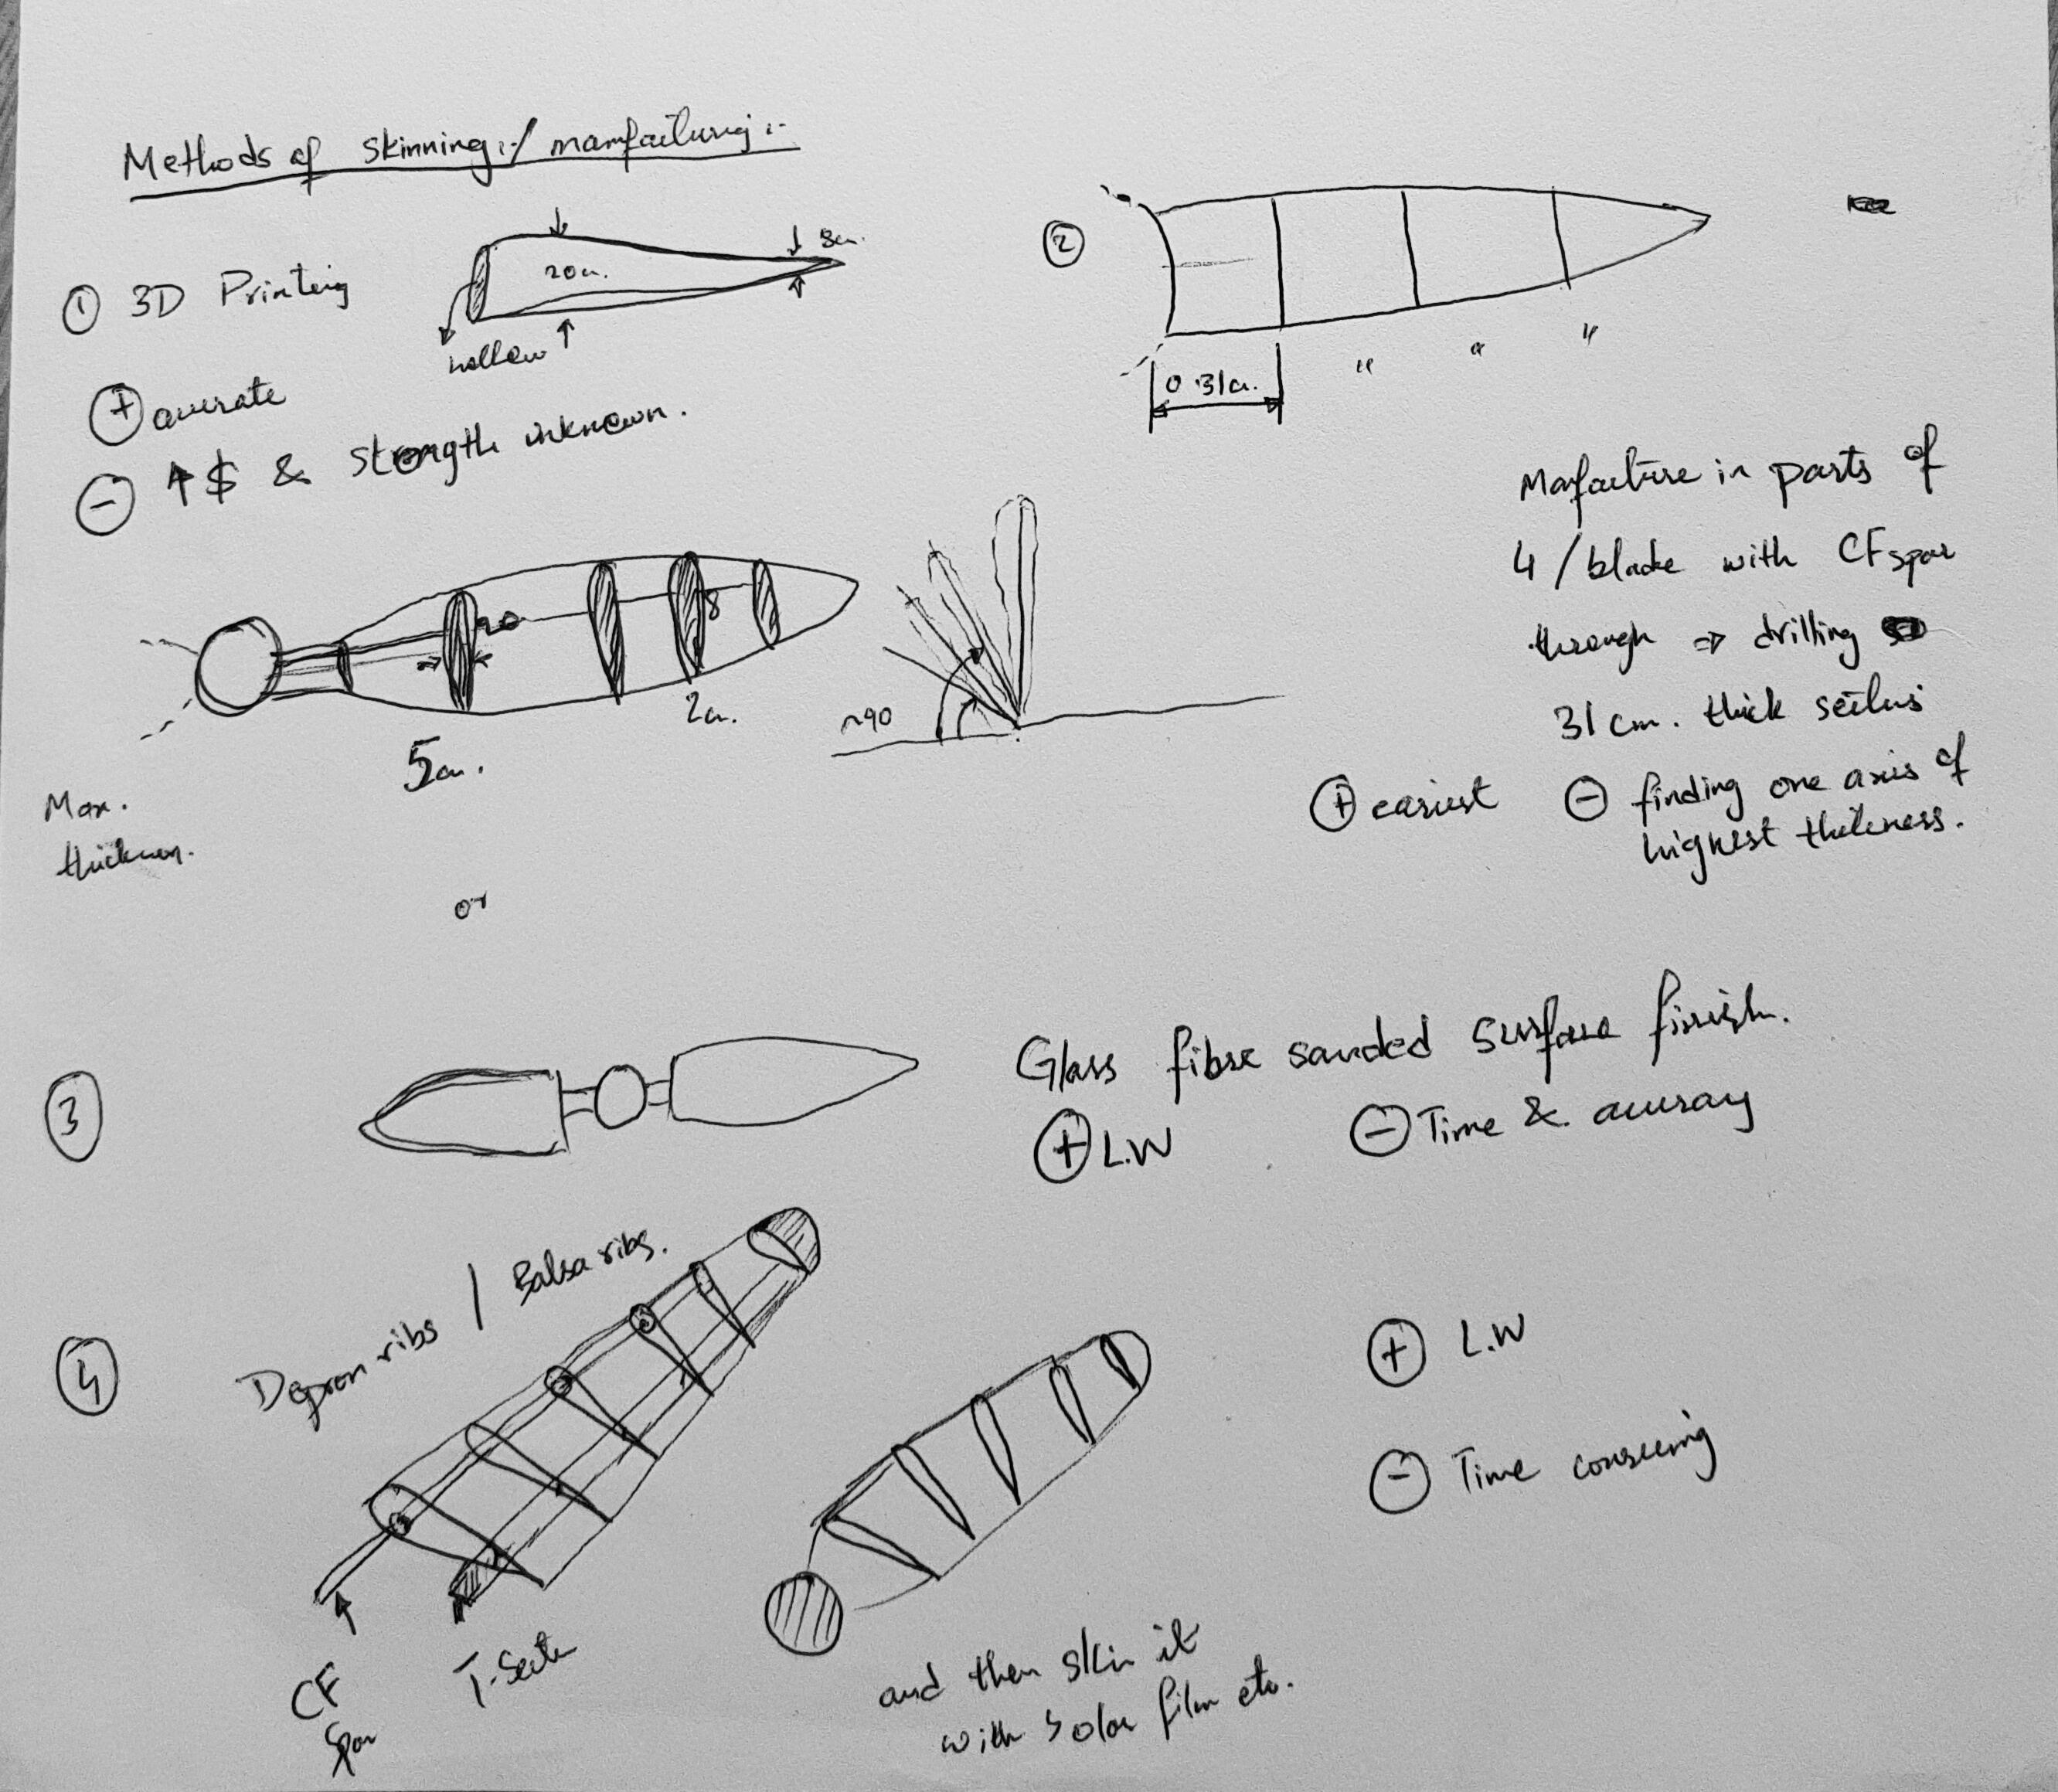 Methods of skinning :-/ manfacturing :-
① 3D Printing
20cm.
8cm.
hollow
⊕ accurate
⊖ ↑$ & strength unknown.
②
0.31cm.
" " "
Manfacture in parts of
4 / blade with CF spar
through ⇒ drilling
31 cm. thick sections
⊕ easiest ⊖ finding one axis of
highest thickness.
20
8
5cm.
2cm.
~90
Max.
thickness.
or
③
Glass fibre sanded surface finish.
⊕ L.W ⊖ Time & accuracy
④
Depron ribs / Balsa ribs.
CF
Spar
T-Section
and then skin it
with solar film etc.
⊕ L.W
⊖ Time consuming